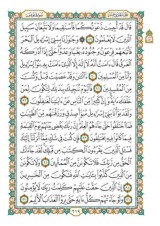 قَالَ قَدْ أُجِيبَت دَّعْوَتُكُمَا فَٱسْتَقِيمَا وَلَا تَتَّبِعَآنِّ سَبِيلَ
ٱلَّذِينَ لَا يَعْلَمُونَ ٨٩ وَجَٰوَزْنَا بِبَنِىٓ إِسْرَٰٓءِيلَ ٱلْبَحْرَ
فَأَتْبَعَهُمْ فِرْعَوْنُ وَجُنُودُهُۥ بَغْيًا وَعَدْوًا حَتَّىٰٓ إِذَآ أَدْرَكَهُ
ٱلْغَرَقُ قَالَ ءَامَنتُ أَنَّهُۥ لَآ إِلَٰهَ إِلَّا ٱلَّذِىٓ ءَامَنَتْ بِهِۦ بَنُوٓا۟ إِسْرَٰٓءِيلَ
وَأَنَا۠ مِنَ ٱلْمُسْلِمِينَ ٩٠ ءَآلْـَٰٔنَ وَقَدْ عَصَيْتَ قَبْلُ وَكُنتَ
مِنَ ٱلْمُفْسِدِينَ ٩١ فَٱلْيَوْمَ نُنَجِّيكَ بِبَدَنِكَ لِتَكُونَ لِمَنْ خَلْفَكَ
ءَايَةً وَإِنَّ كَثِيرًا مِّنَ ٱلنَّاسِ عَنْ ءَايَٰتِنَا لَغَٰفِلُونَ ٩٢
وَلَقَدْ بَوَّأْنَا بَنِىٓ إِسْرَٰٓءِيلَ مُبَوَّأَ صِدْقٍ وَرَزَقْنَٰهُم مِّنَ ٱلطَّيِّبَٰتِ
فَمَا ٱخْتَلَفُوا۟ حَتَّىٰ جَآءَهُمُ ٱلْعِلْمُ إِنَّ رَبَّكَ يَقْضِى بَيْنَهُمْ يَوْمَ
ٱلْقِيَٰمَةِ فِيمَا كَانُوا۟ فِيهِ يَخْتَلِفُونَ ٩٣ فَإِن كُنتَ فِى شَكٍّ
مِّمَّآ أَنزَلْنَآ إِلَيْكَ فَسْـَٔلِ ٱلَّذِينَ يَقْرَءُونَ ٱلْكِتَٰبَ مِن قَبْلِكَ لَقَدْ جَآءَكَ
ٱلْحَقُّ مِن رَّبِّكَ فَلَا تَكُونَنَّ مِنَ ٱلْمُمْتَرِينَ ٩٤ وَلَا تَكُونَنَّ
مِنَ ٱلَّذِينَ كَذَّبُوا۟ بِـَٔايَٰتِ ٱللَّهِ فَتَكُونَ مِنَ ٱلْخَٰسِرِينَ ٩٥
إِنَّ ٱلَّذِينَ حَقَّتْ عَلَيْهِمْ كَلِمَتُ رَبِّكَ لَا يُؤْمِنُونَ ٩٦
وَلَوْ جَآءَتْهُمْ كُلُّ ءَايَةٍ حَتَّىٰ يَرَوُا۟ ٱلْعَذَابَ ٱلْأَلِيمَ ٩٧
٢١٩